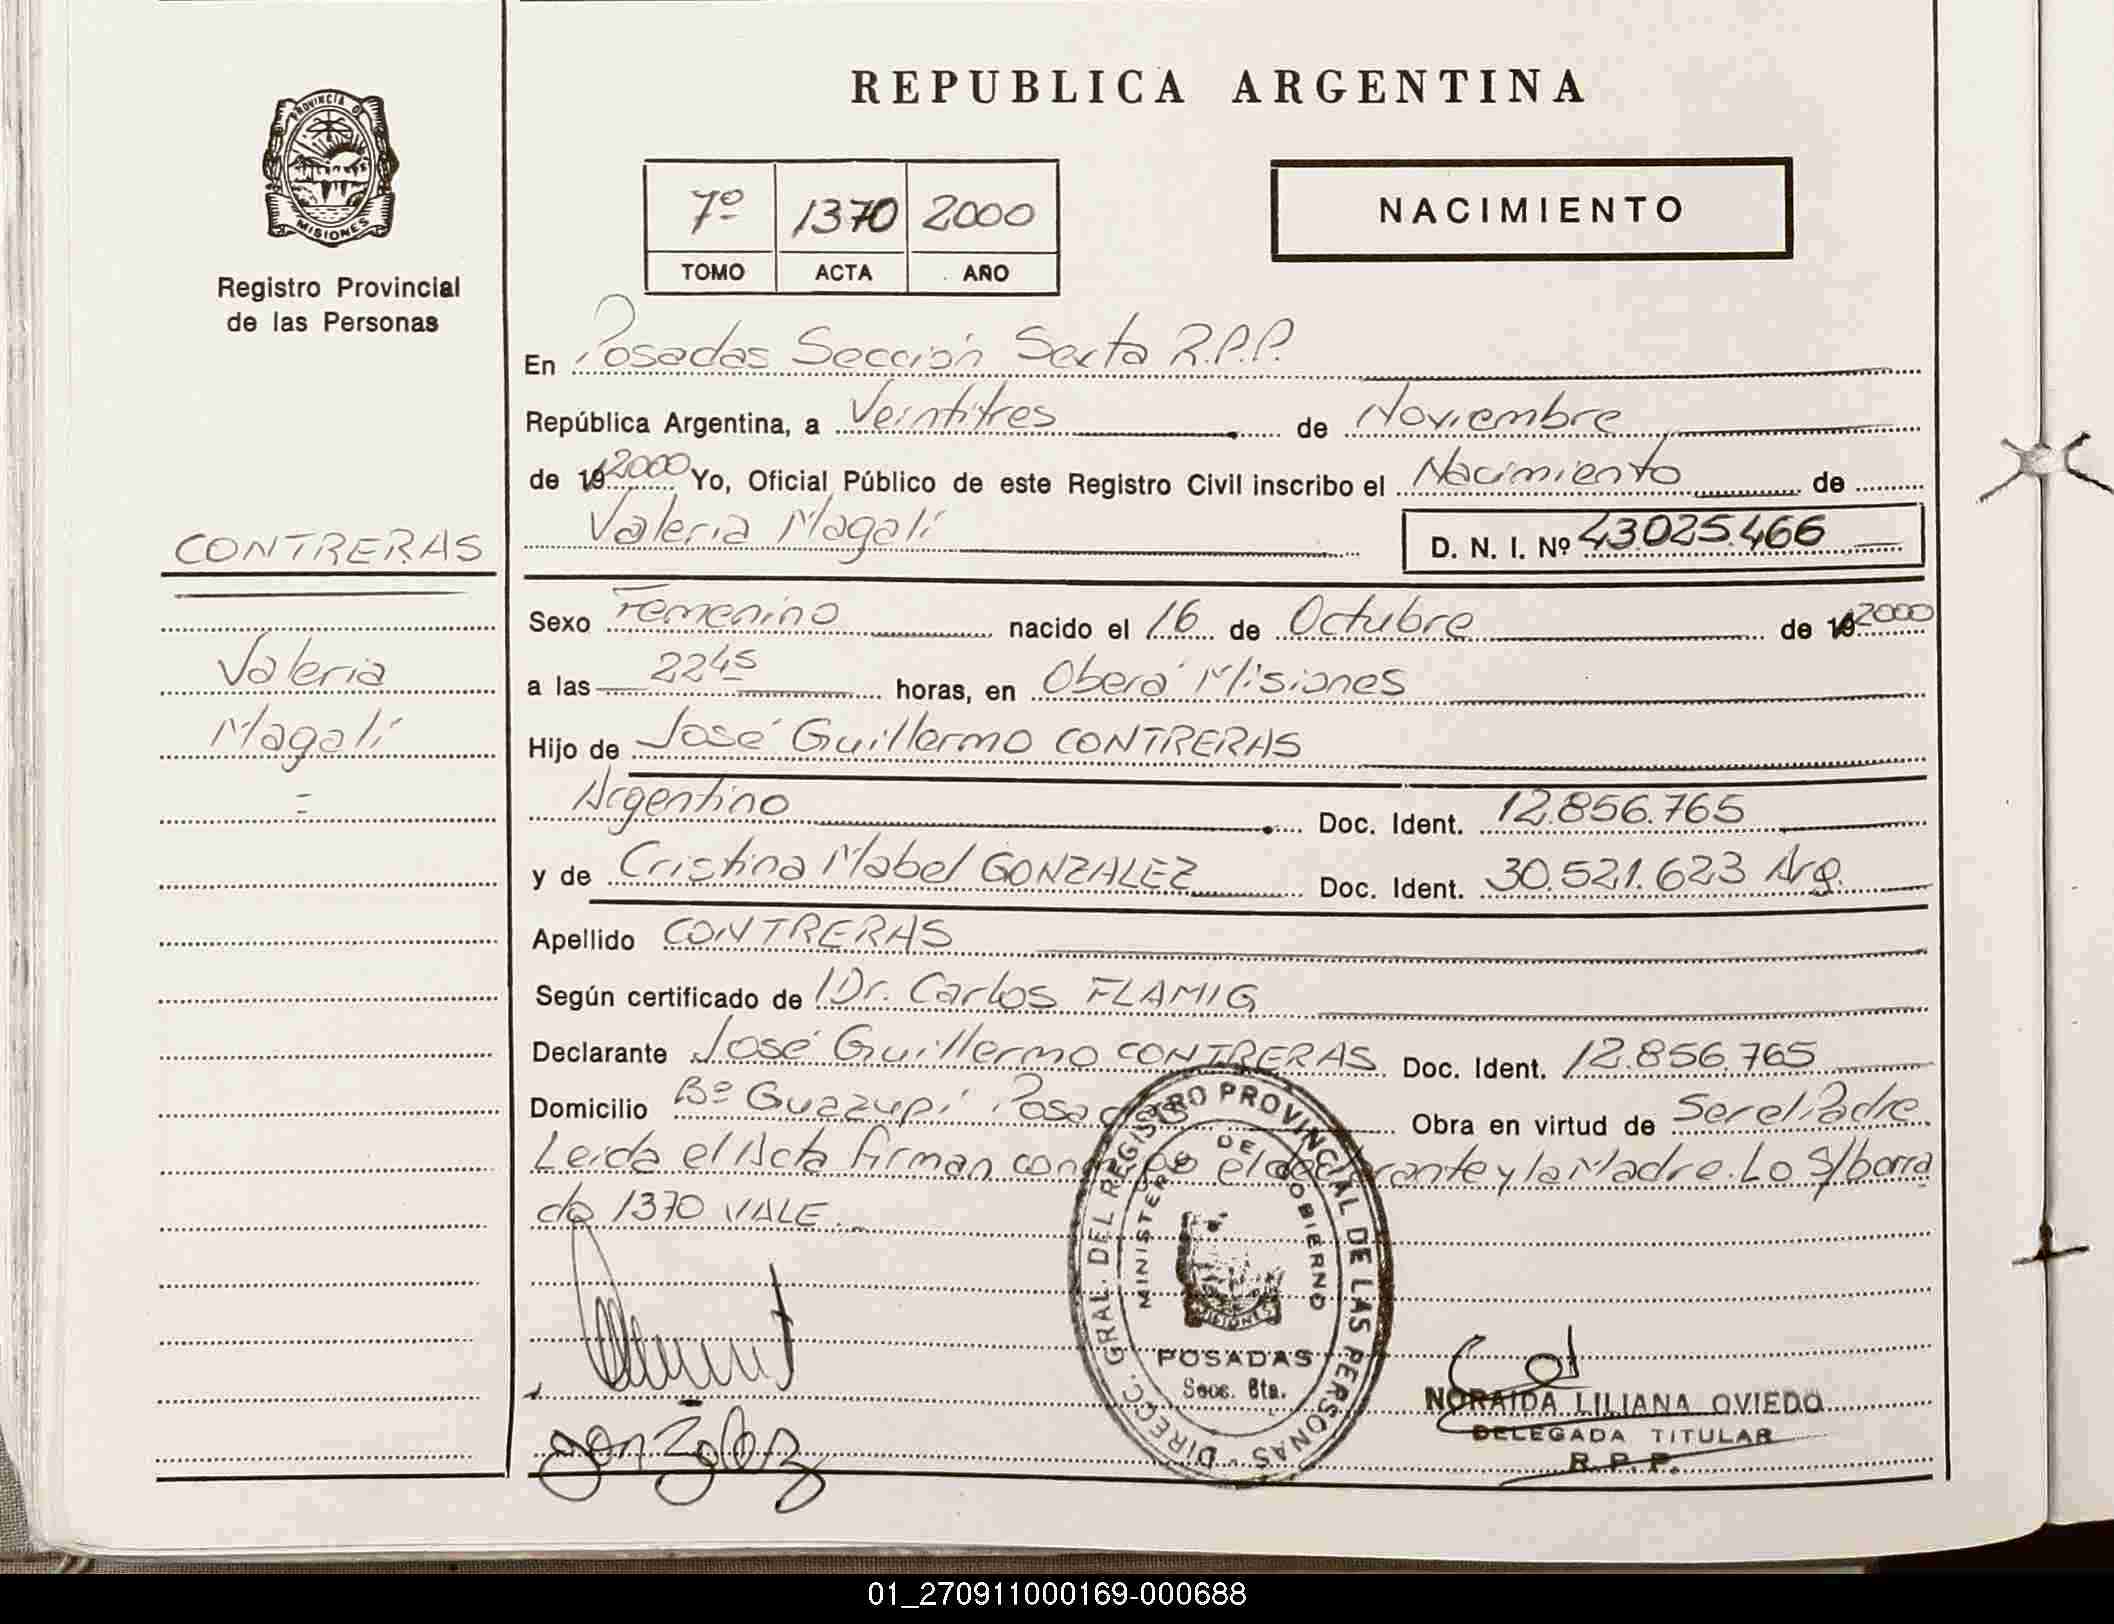 REPUBLICA ARGENTINA
PROVINCIA DE
MISIONES
Registro Provincial
de las Personas
7º 1370 2000
TOMO ACTA AÑO
NACIMIENTO
En Posadas Sección Sexta R.P.P.
República Argentina, a Veintitres de Noviembre
de 19 2000 Yo, Oficial Público de este Registro Civil inscribo el Nacimiento de
Valeria Magalí D. N. I. Nº 43.025.466
CONTRERAS
Valeria
Magalí
Sexo Femenino nacido el 16 de Octubre de 19 2000
a las 2245 horas, en Oberá Misiones
Hijo de José Guillermo CONTRERAS
Argentino Doc. Ident. 12.856.765
y de Cristina Mabel GONZALEZ Doc. Ident. 30.521.623 Arg.
Apellido CONTRERAS
Según certificado de Dr. Carlos FLAMIG
Declarante José Guillermo CONTRERAS Doc. Ident. 12.856.765
Domicilio Bº Guazupí Posadas Obra en virtud de Ser el Padre
Leída el Acta firman conmigo el declarante y la Madre. Lo S/borra
do 1370 VALE.
DIRECC. GRAL. DEL REGISTRO PROVINCIAL DE LAS PERSONAS
MINISTERIO DE GOBIERNO
MISIONES
POSADAS
Secc. 6ta.
gonzález
NORAIDA LILIANA OVIEDO
DELEGADA TITULAR
R. P. P.
01_270911000169-000688